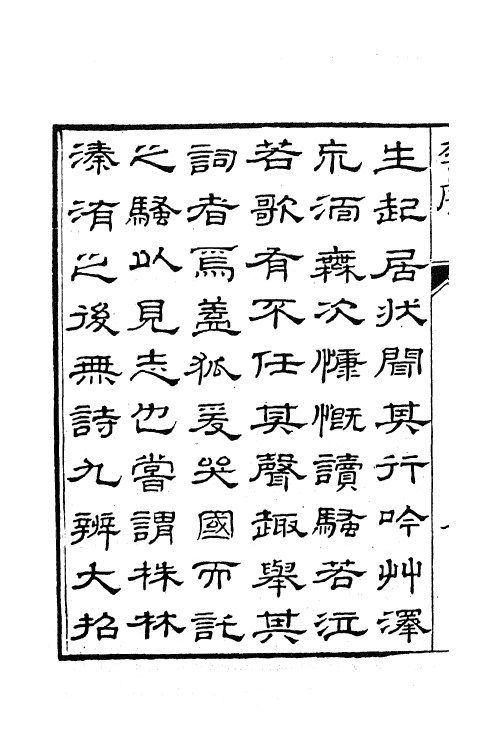 生起居狀聞其行吟艸澤
𠕲湎舞次慷慨讀騷若泣
若歌有不任其聲趣舉其
詞者焉蓋狐爰哭國而託
之騷以見志也嘗謂株林
溱洧之後無詩九辨大招